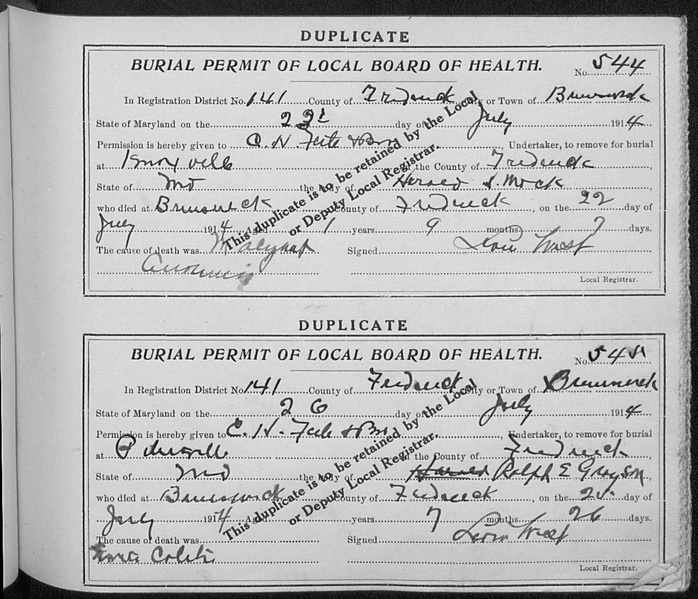 DUPLICATE
BURIAL PERMIT OF LOCAL BOARD OF HEALTH.
No. 544
In Registration District No. 141 County of Frederick City or Town of Brunswick
State of Maryland on the 22d day of July 1914
Permission is hereby given to C. H. Feete & Bro Undertaker, to remove for burial
at Knoxville the County of Frederick
State of Md the body of Harold S. Mock
who died at Brunswick County of Frederick, on the 22 day of
July 1914 1 years 9 months 7 days.
The cause of death was Signed Levin West
Local Registrar.
This duplicate is to be retained by the Local
or Deputy Local Registrar.
DUPLICATE
BURIAL PERMIT OF LOCAL BOARD OF HEALTH.
No. 545
In Registration District No. 141 County of Frederick City or Town of Brunswick
State of Maryland on the 26 day of July 1914
Permission is hereby given to C. H. Feete & Bro, Undertaker, to remove for burial
at the County of Frederick
State of Md the body of Harold Ralph E Grayson
who died at Brunswick County of Frederick, on the 25 day of
July 1914 years 7 months 26 days.
The cause of death was Signed Levin West
Colitis
Local Registrar.
This duplicate is to be retained by the Local
or Deputy Local Registrar.